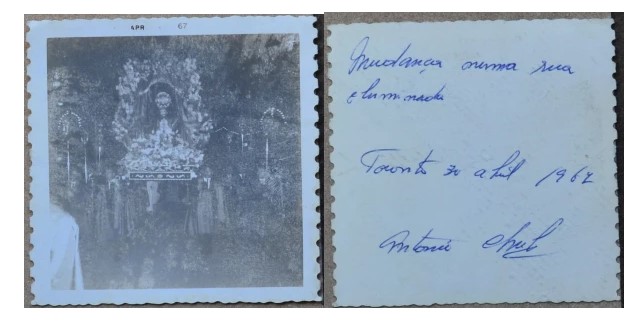 APR 67
Mudança numa rua
eluminada
Toronto 30 abril 1967
Antonio